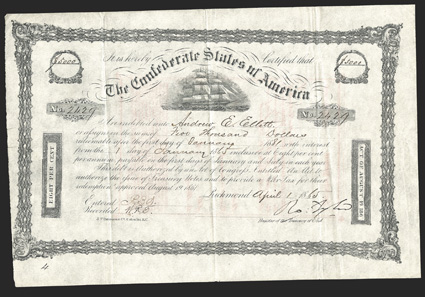 It is hereby Certified that
$5000
$5000
The Confederate States of America
No. 2429
No. 2429
Andrew E. Ellett
Thousand Dollars
redeemable after the first day of January 1881 with interest
from the 1 day of January 1865 inclusive at Eight per cent
per annum payable on the first days of January and July in each year
This debt is authorized by an Act of Congress Entitled "An Act to
authorize the issue of Treasury Notes and to provide a War Tax for their
redemption" approved August 19 1861
EIGHT PER CENT
ACT OF AUGUST 19. 1861
Richmond April 1 1865
Entered
Recorded
Register of the Treasury
4